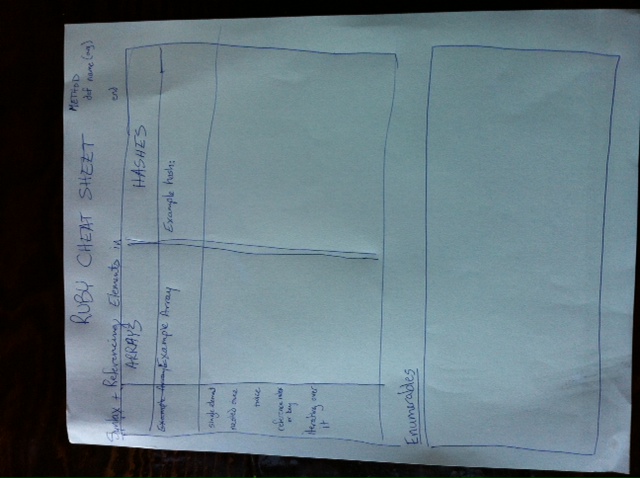 RUBY CHEAT SHEET
METHOD
def name (arg)
end
Syntax + Referencing Elements in
ARRAYS
HASHES
Example Array
Example Array
Example hash:
single element
nested once
twice
reference index
or key
iterating over
it
Enumerables